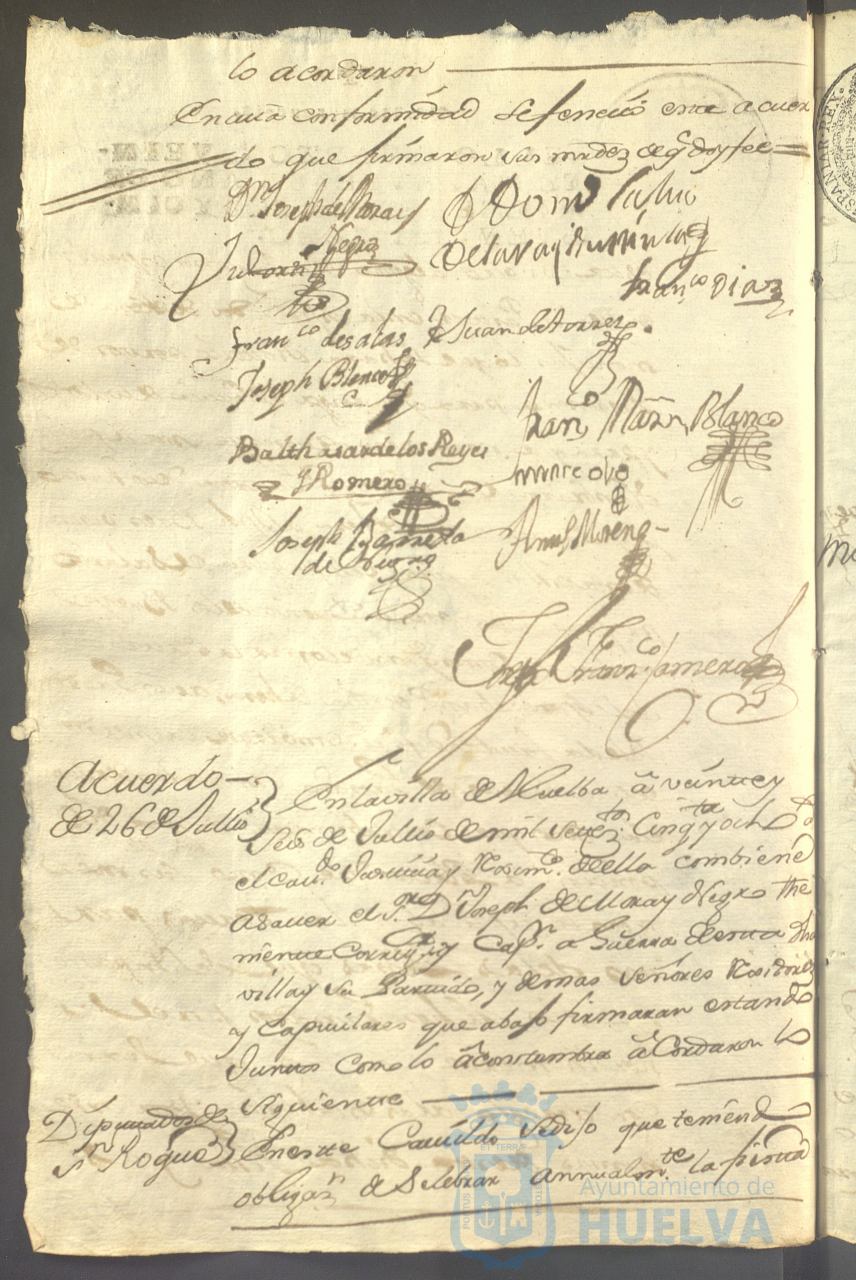 lo acordaron
En cuia conformidad se feneció este acuer
do que firmaron sus mrdez de q doy fee
Dn. Joseph de Mora y
Negro
Franco Dias
Franco de salas
Juan de torres
Joseph Blanco
Franco Marn Blanco
Balthasar de los Reyes
y Romero
Joseph
Moreno
Franco Camero
Acuerdo
de 26 de Jullio
En la villa de Huelba â veinte y
seis de Jullio de mil setetos. cinqta y ocho
el cauo. Justicia y Rexmto. de ella combiene
a sauer el Sr. Dn Joseph de Mora y Negro the
niente Corregor. y Capn. a Guerra de esta dha
villa y su Partido, y demas señores Rexidores
y Capitulares que abajo firmaran estando
Juntos como lo â costumbra â Cordaron lo
siguiente
Diputados de
Sn Roque
En este Cauildo se dijo que teniendo
obligazn de Selebrar annualmte. la fiesta
Ayuntamiento de
HUELVA